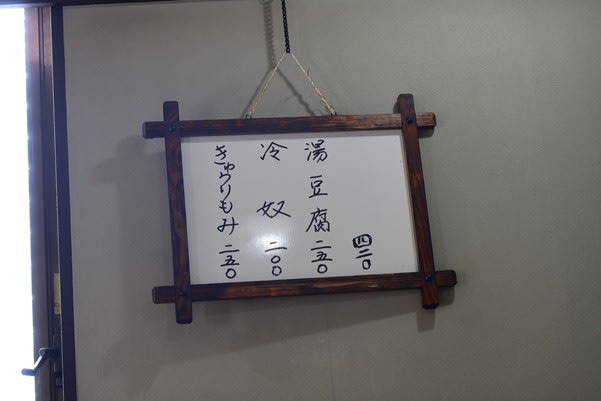 四二〇
湯豆腐二五〇
冷奴二〇〇
きゅうりもみ二五〇